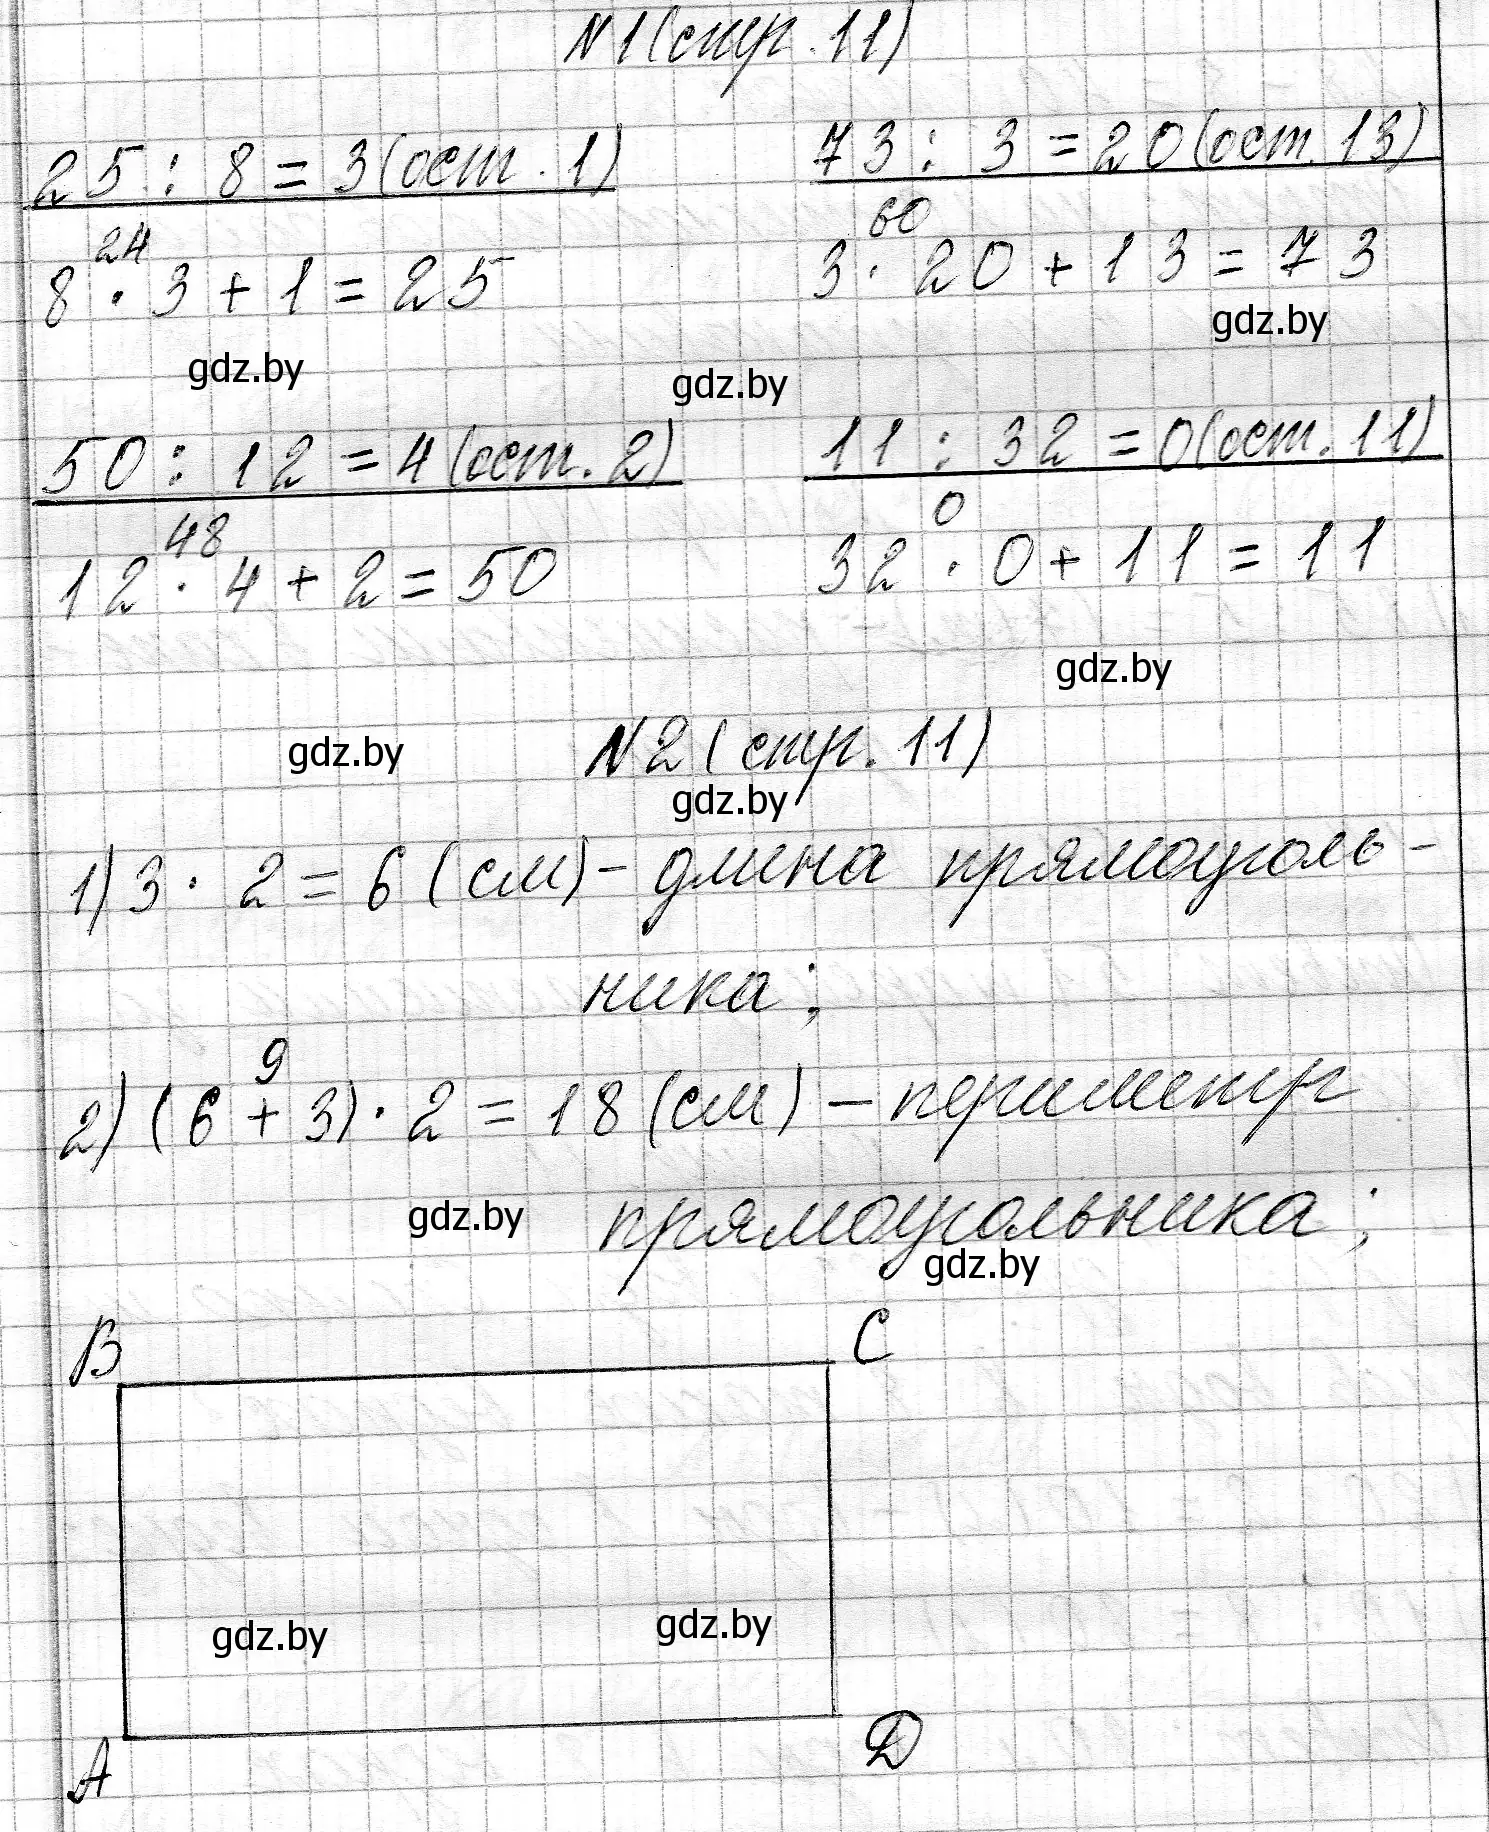 N1(стр. 11)
25 : 8 = 3(ост. 1)
73 : 3 = 20(ост. 13)
24
8 · 3 + 1 = 25
60
3 · 20 + 13 = 73
gdz.by
gdz.by
gdz.by
50 : 12 = 4(ост. 2)
11 : 32 = 0(ост. 11)
48
12 · 4 + 2 = 50
0
32 · 0 + 11 = 11
gdz.by
gdz.by
N2(стр. 11)
gdz.by
1) 3 · 2 = 6 (см) - длина прямоуголь-
ника;
9
2) (6 + 3) · 2 = 18 (см) - периметр
gdz.by
прямоугольника;
gdz.by
B C
gdz.by
gdz.by
A D